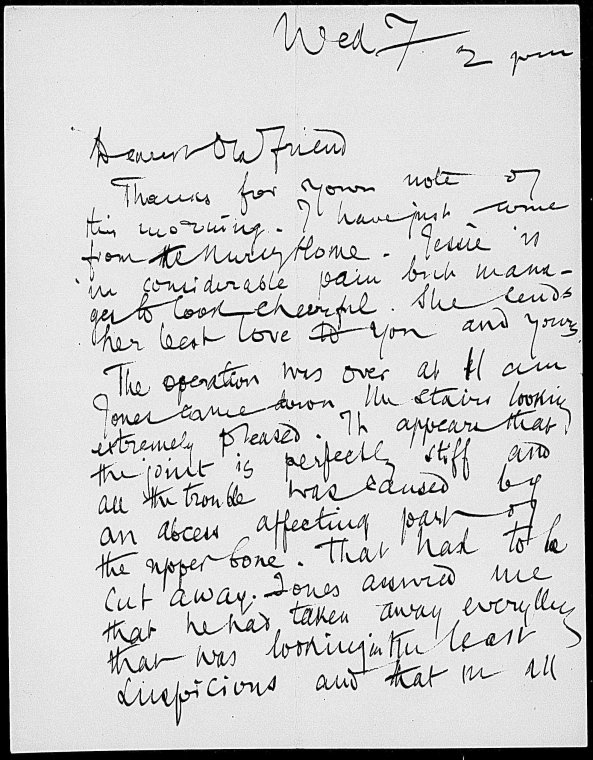 Wed. 7
2 pm
Dearest Old Friend
Thanks for your note of
this morning. I have just come
from the Nursing Home. Jessie is
in considerable pain but mana-
ges to look cheerful. She sends
her best love to you and yours.
The operation was over at 11 am
Jones came down the stairs looking
extremely pleased. It appears that
the joint is perfectly stiff and
all the trouble was caused by
an abcess affecting part of
the upper bone. That had to be
cut away. Jones assured me
that he had taken away everything
that was looking in the least
suspicious and that in all